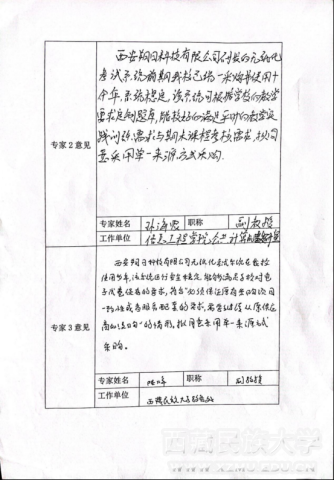 西安翔日科技有限公司的无纸化
考试系统前期我校已统一采购并使用十
余年,系统稳定,该系统可根据学校的教学
需求定制题库,能较好的满足平时的教学实
践训练需求与期末课程考核需求,拟同
意采用单一来源方式采购。
专家2意见
专家姓名
职称
副教授
工作单位
信息工程学院
西安翔日科技有限公司无纸化考试系统在我校
使用多年,该系统运行安全稳定,能够满足学校对电
子试卷保存的要求,符合“必须保证原有采购项目
一致性或者服务配套的要求,需要继续从原供应
商处添购”的情形,拟同意采用单一来源方式
采购。
专家3意见
专家姓名
职称
副教授
工作单位
西藏民族大学
西藏民族大学
WWW.XZMU.EDU.CN